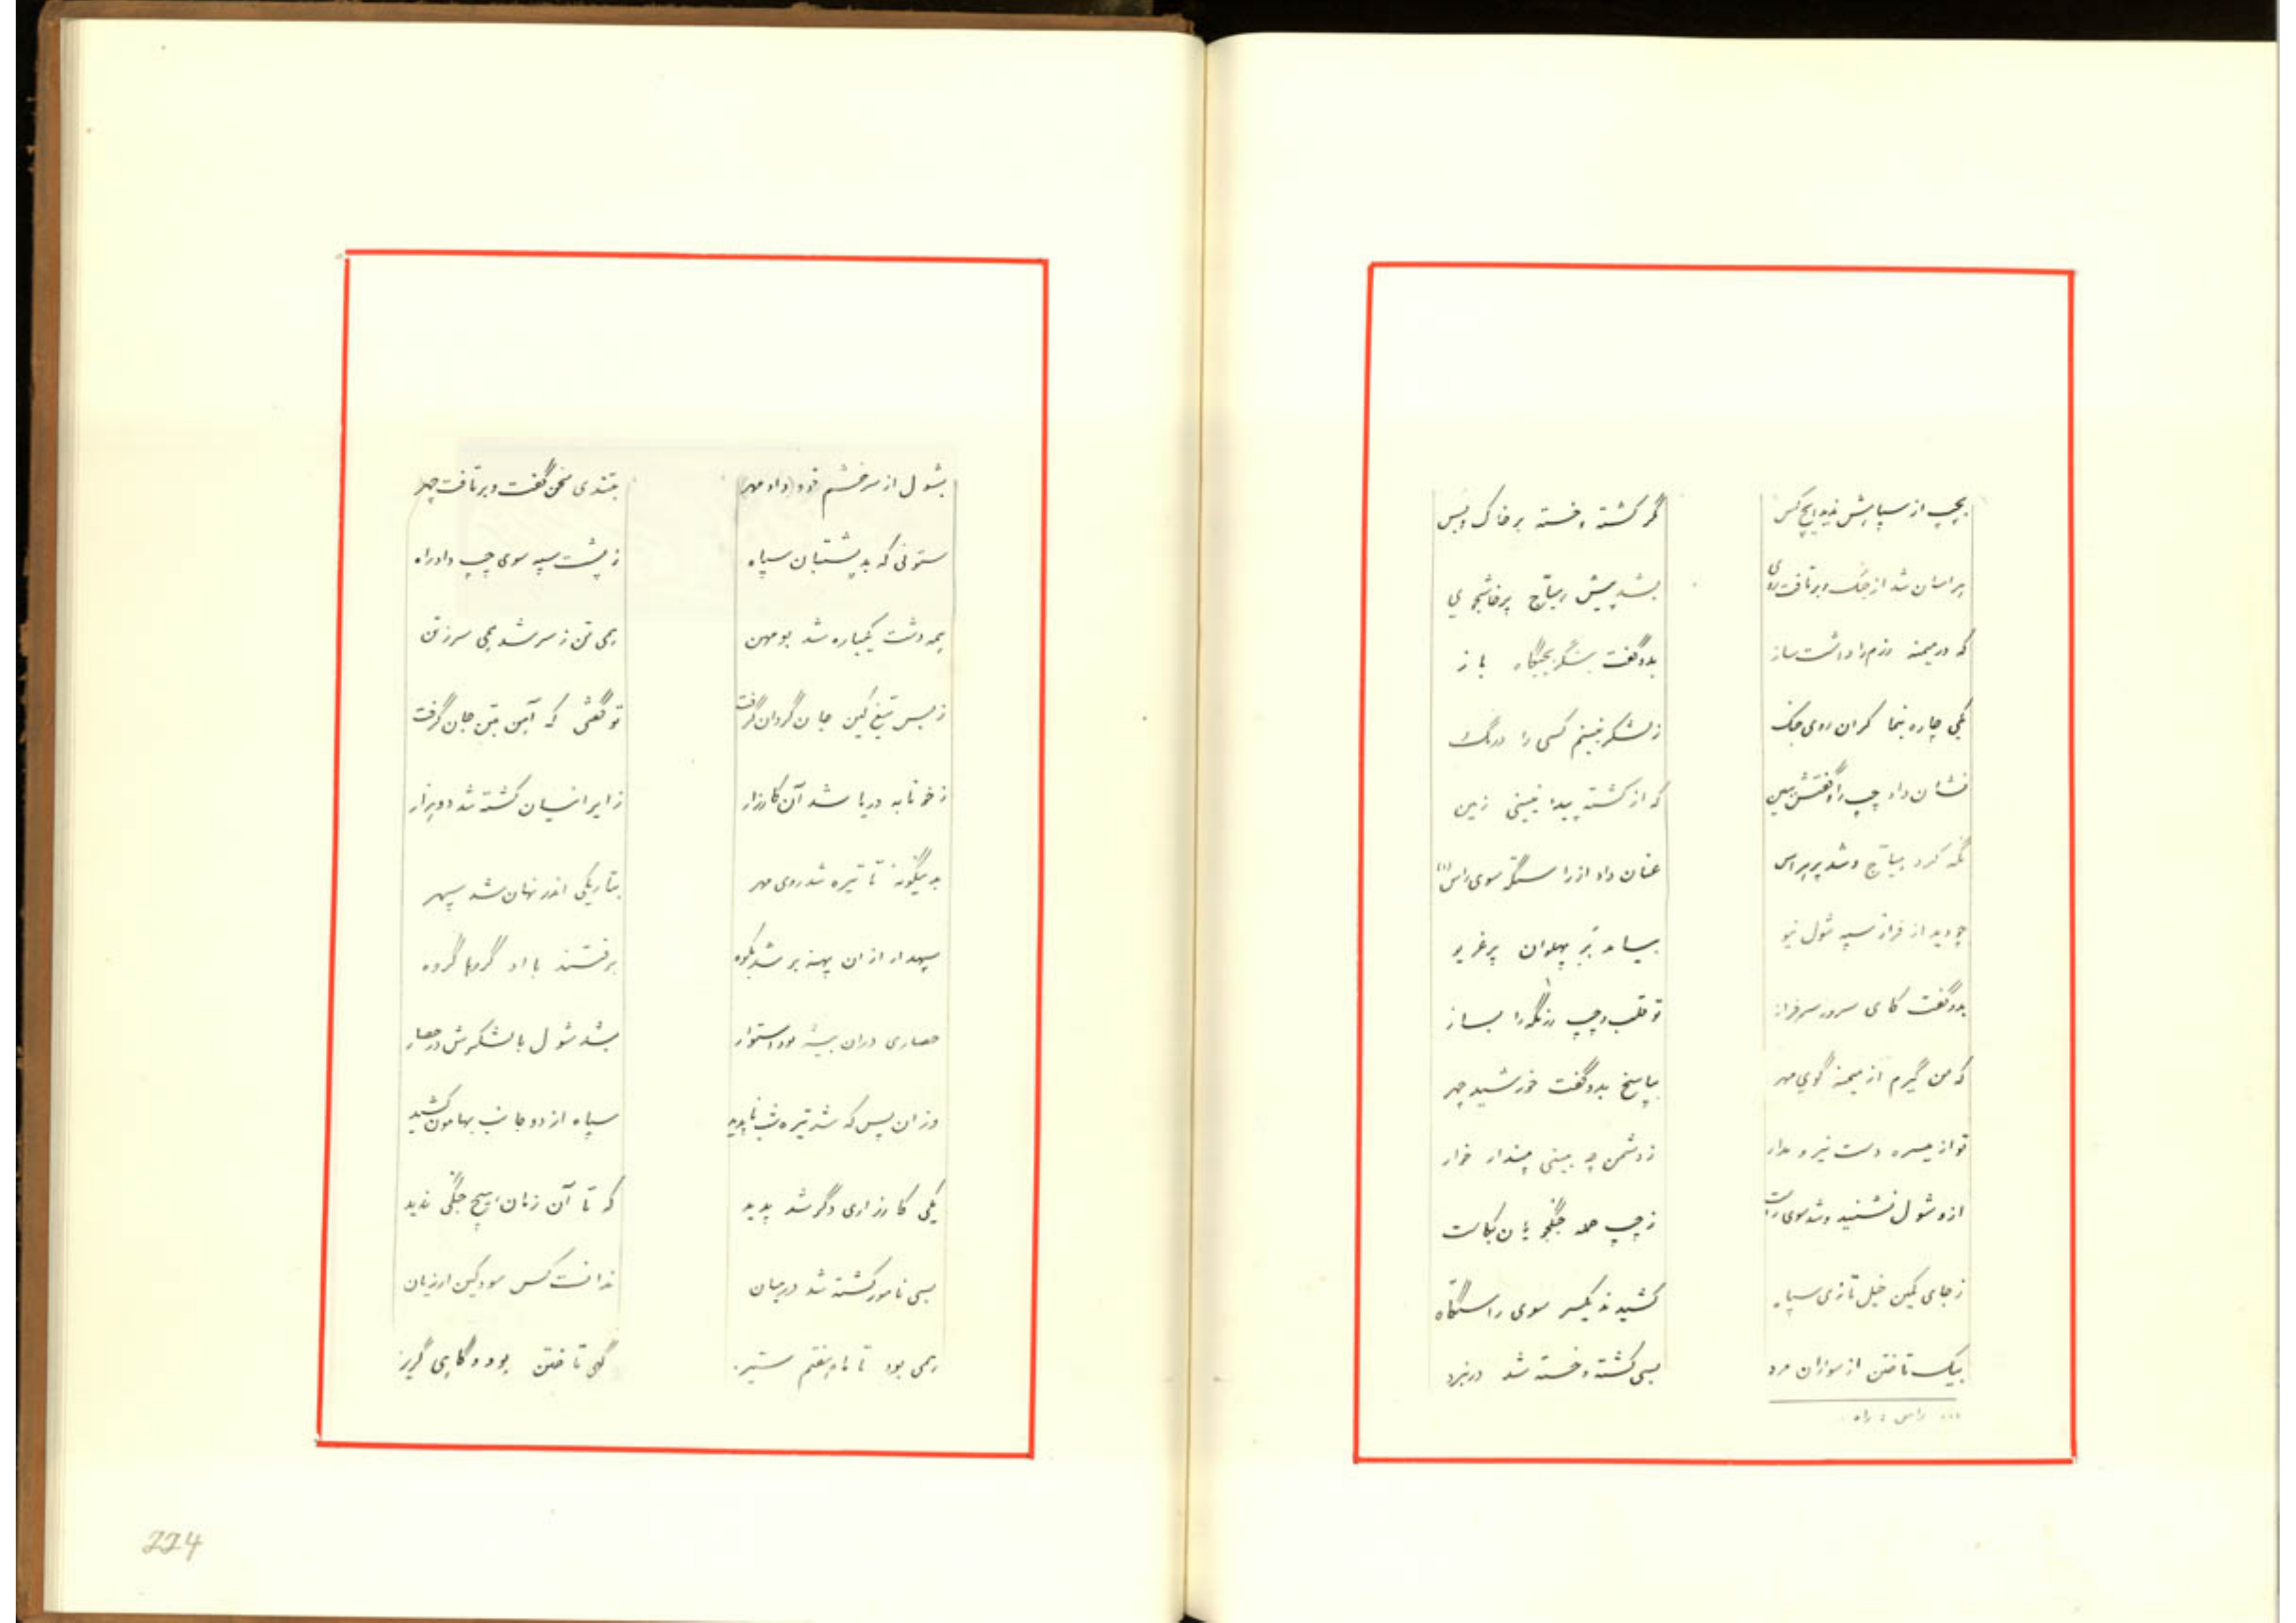 بچپ از سپاهش ندید ایچ کس    مگر کشته و خسته بر خاک و بس
هراسان شد از جنگ و برتافت روی    بشد پیش هیتاج پرخاشجوی
که در میمنه رزم را داشت ساز    بدو گفت بنگر بجنگاه باز
یکی چاره بنما گران روی جنگ    ز لشکر نبینم کسی را درنگ
نشان داد چپ را و گفتش ببین    که از کشته پیدا نبینی زمین
نگه کرد هیتاج و شد پر هراس    عنان داد از راستگه سوی راس (۱)
چو دید از فراز سپه شول نیو    بیامد بر پهلوان پر غریو
بدو گفت کای سرور سرفراز    تو قلب و چپ رزمگه را بساز
که من گیرم از میمنه گوی مهر    بپاسخ بدو گفت خورشید چهر
تو از میسره دست نیرو مدار    ز دشمن چه بینی مپندار خوار
ازو شول نشنید و شد سوی راست    ز چپ حمله جنگجویان بکاست
ز جای کمین خیل تازی سپاه    کشیدند یکسر سوی راستگاه
بیک تاختن از سواران مرد    بسی کشته و خسته شد در نبرد
(۱) راس : راه
بشول از سر خشم خود (داد مهر)    بتندی سخن گفت و برتافت چهر
ستونی که بد پشتبان سپاه    ز پشت سپه سوی چپ داد راه
همه دشت یکباره شد بومهن    همی تن ز سر شد همی سر ز تن
ز بس تیغ کین جان گردان گرفت    تو گفتی که آهن بتن جان گرفت
ز خونابه دریا شد آن کارزار    ز ایرانیان کشته شد دو هزار
بدینگونه تا تیره شد روی مهر    بتاریکی اندر نهان شد سپهر
سپهدار از ان پهنه بر شد بکوه    برفتند با او گروها گروه
حصاری دران بیشه بود استوار    بشد شول با لشکرش در حصار
وزان پس که شد تیره شب ناپدید    سپاه از دو جانب بهامون کشید
یکی کارزاری دگر شد پدید    که تا آن زمان هیچ جنگی ندید
بسی نامور کشته شد در میان    ندانست کس سود کین از زیان
همی بود تا ماه هفتم ستیز    گهی تاختن بود و گاهی گریز
224